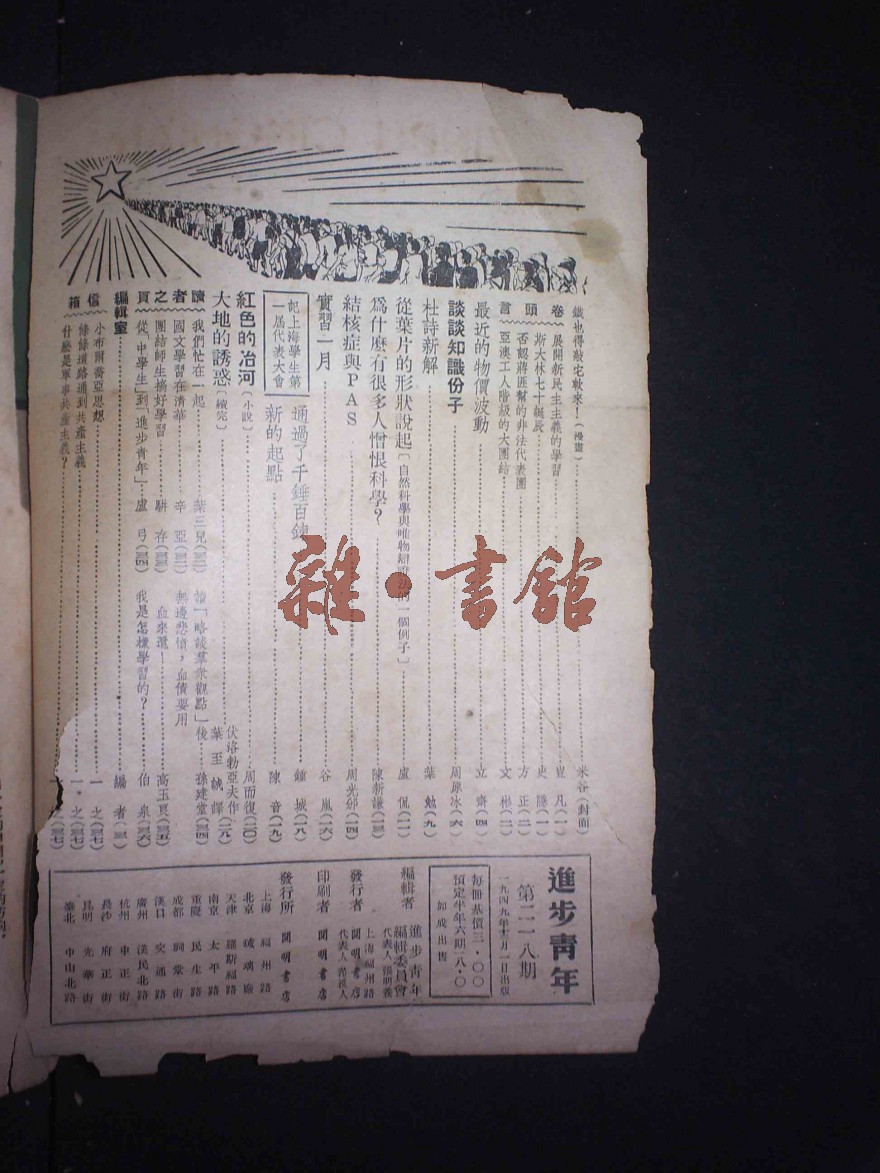 鐵也得敲宅軟來！（漫畫）……米谷（封面）
卷頭言
展開新民主主義的學習……凡（一）
斯大林七十誕辰……史（一）
否認蔣匪幫的非法代表團……方正（二）
亞澳工人階級的大團結……文彬（二）
最近的物價波動……立齋（四）
談談知識份子……周原冰（六）
杜詩新解……葉勉（九）
從葉片的形狀說起［自然科學與唯物辯證法的一個例子］……盧侃（一一）
爲什麼有很多人憎恨科學？……陳新謙（一三）
結核症與PAS……周光邠（一四）
實習一月……谷嵐（一六）
記上海學生第一屆代表大會
通過了千錘百鍊……鍾城（一八）
新的起點……陳音（一九）
紅色的冶河［小說］……周而復（二〇）
大地的誘惑［續完］……伏洛勃亞夫作 葉至誠譯（二九）
讀者之頁
我們忙在一起……葉三兒（三二）
讀「略談羣衆觀點」後……孫建堂（三四）
國文學習在清華……辛亞（三二）
無邊悲憤，血債要用血來還……高玉良（三五）
團結師生搞好學習……騈存（三三）
從「中學生」到「進步青年」……盧弓（三四）
我是怎樣學習的？……伯泉（三六）
編輯室……編者（三一）
信箱
小布爾喬亞思想……一之（三七）
條條道路通到共產主義……一之（三七）
什麼是軍事共產主義？……之（三七）
進步青年
第二一八期
一九四九年十二月一日出版
每冊基價三·〇〇
預定半年六期一八·〇
加成出售
編輯者 進步青年編輯委員會
代表人 張明養
發行者 上海福州路開明書店
代表人 范洗人
印刷者 開明書店
發行所 開明書店
上海 福州路
北京 琉璃廠
天津 羅斯福路
南京 太平路
重慶 民生路
成都 祠堂街
漢口 交通路
廣州 漢民北路
杭州 中正街
長沙 府正街
昆明 光華街
臺北 中山北路
雜·書舘